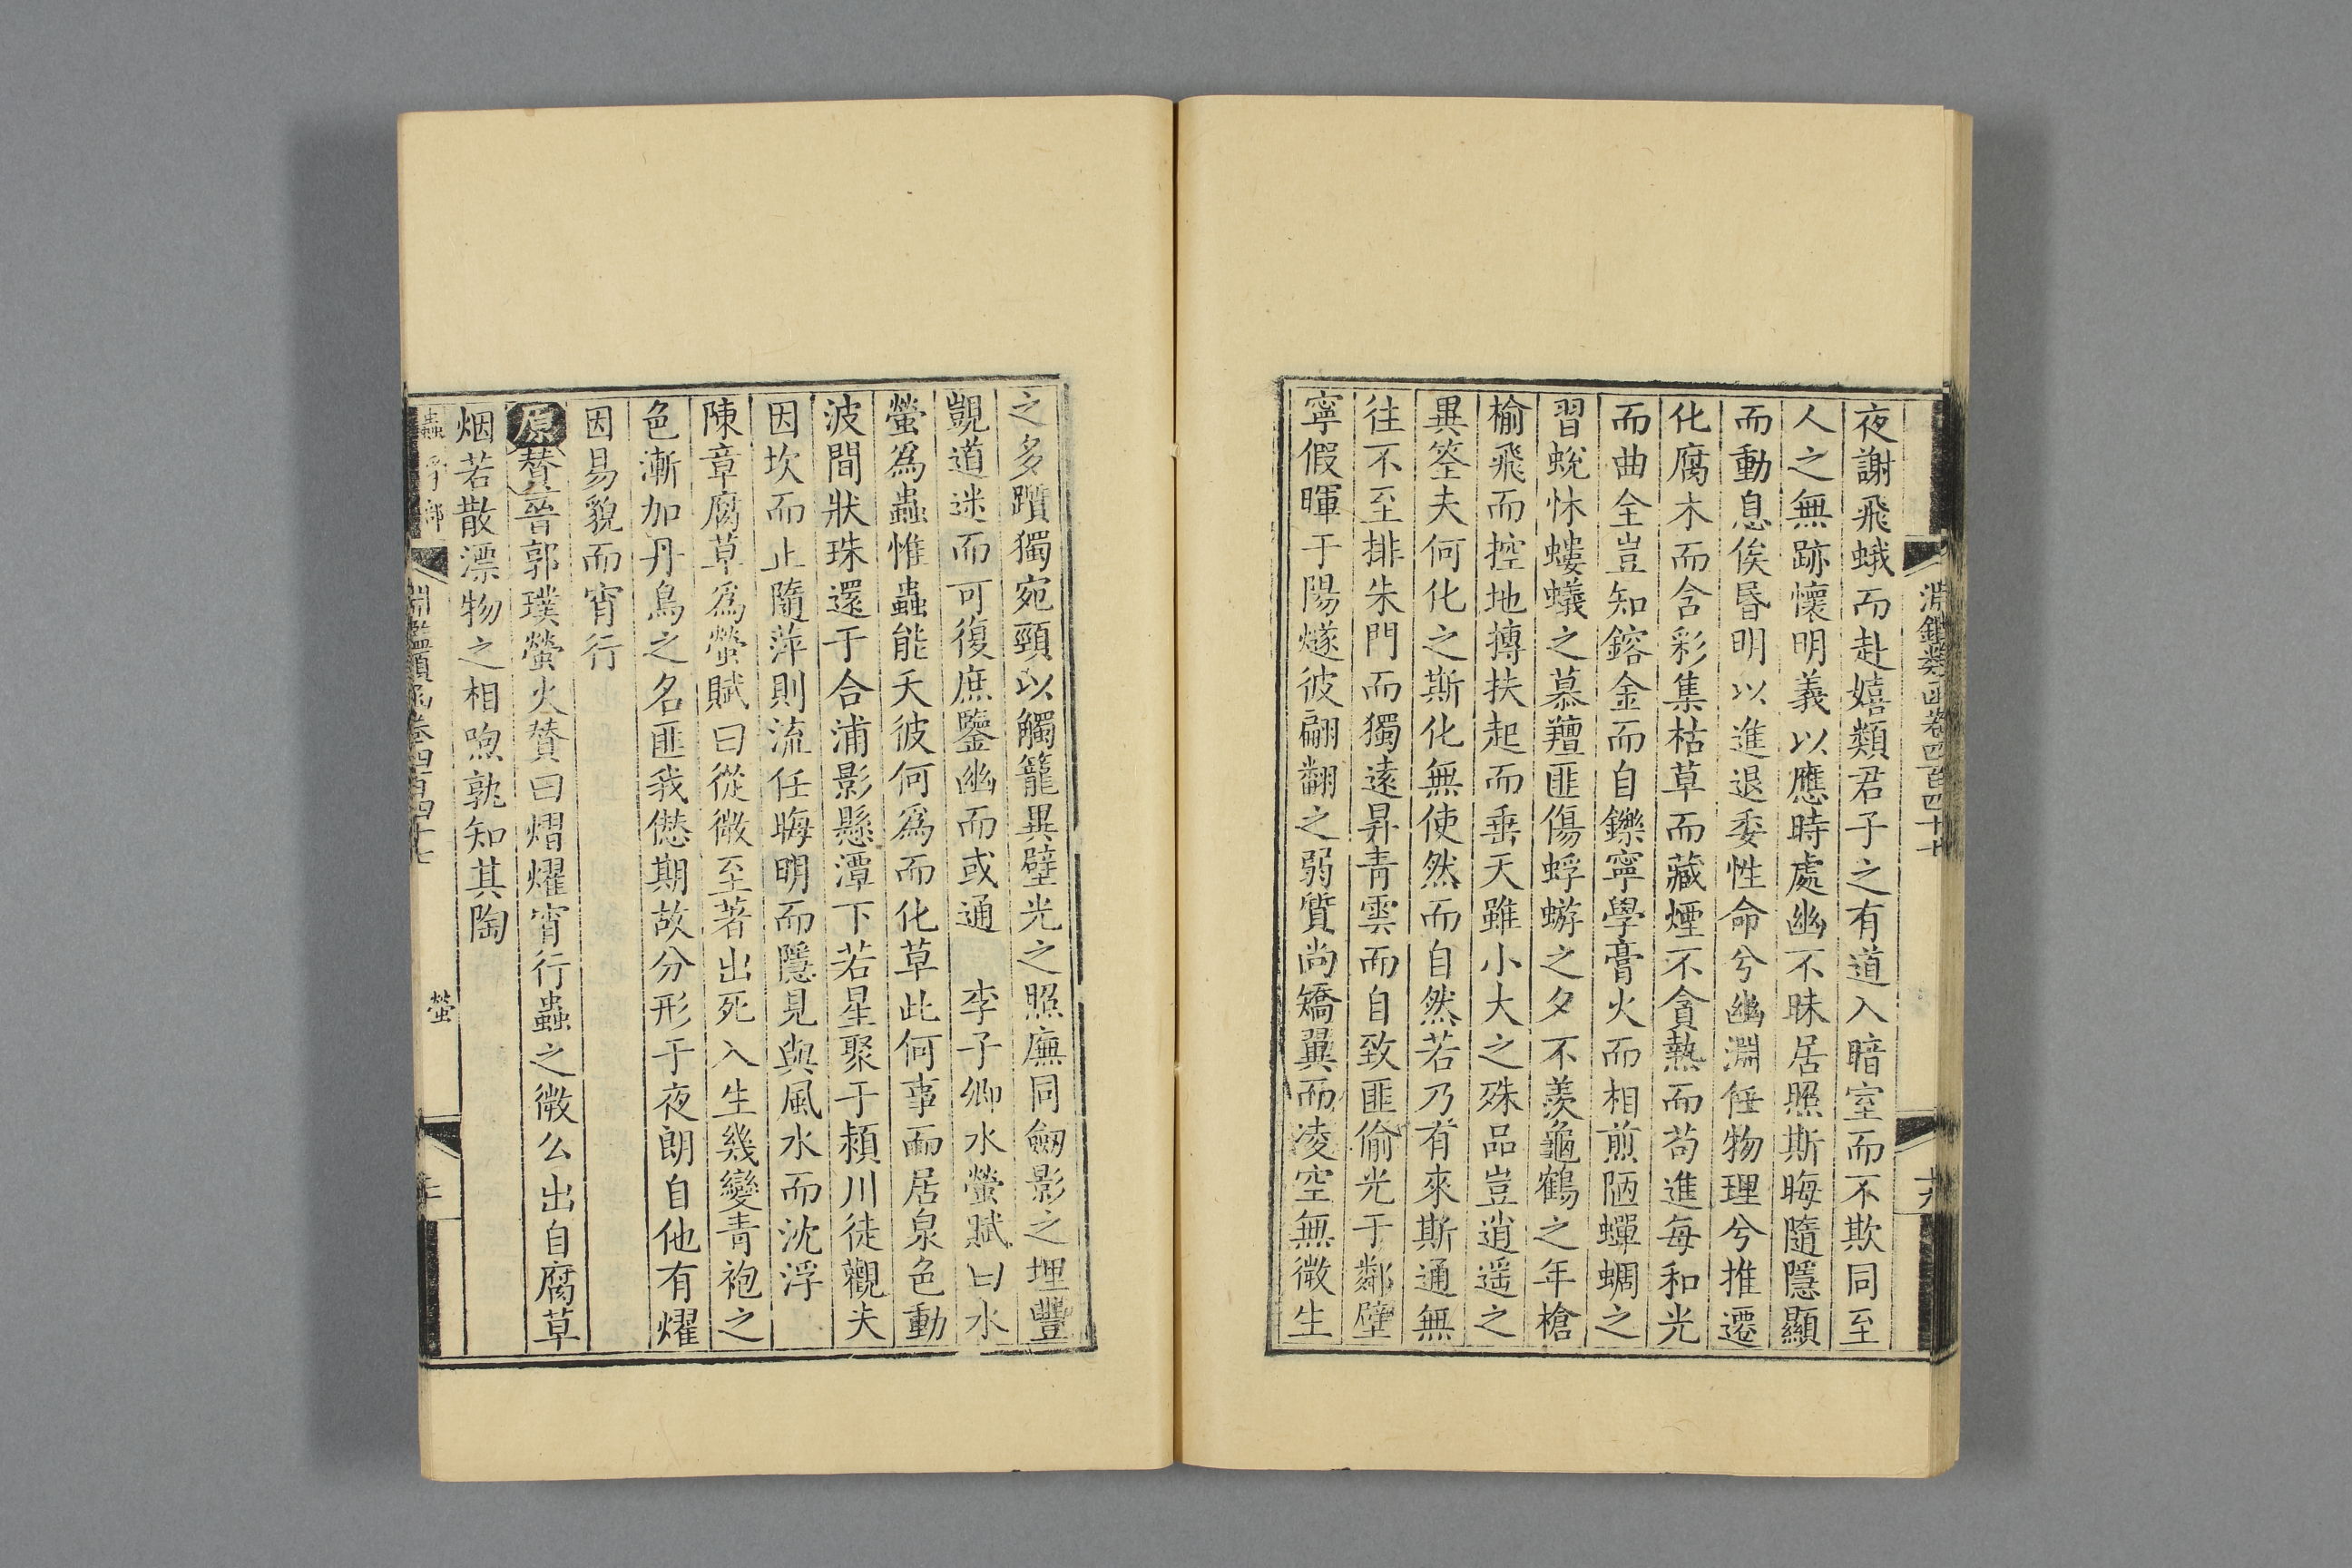 淵鑑類函卷四百四十七
夜謝飛蛾而赴嬉類君子之有道入暗室而不欺同至
人之無跡懷明義以應時處幽不昧居照斯晦隨隱顯
而動息俟昏明以進退委性命兮幽淵任物理兮推遷
化腐木而含彩集枯草而藏煙不貪熱而苟進每和光
而曲全豈知鎔金而自鑠寧學膏火而相煎陋蟬蜩之
習蛻怵螻蟻之慕羶匪傷蜉蝣之夕不羨龜鶴之年槍
榆飛而控地摶扶起而垂天雖小大之殊品豈逍遥之
異筌夫何化之斯化無使然而自然若乃有來斯通無
往不至排朱門而獨遠昇青雲而自致匪偷光于鄰壁
寧假暉于陽燧彼翩翻之弱質尚矯翼而凌空無微生
之多躓獨宛頸以觸籠異壁光之照廡同劒影之埋豐
覬道迷而可復庶鑒幽而或通 李子卿水螢賦曰水
螢爲蟲惟蟲能天彼何爲而化草此何事而居泉色動
波間狀珠還于合浦影懸潭下若星聚于潁川徒觀夫
因坎而止隨萍則流任晦明而隱見與風水而沈浮
陳章腐草爲螢賦曰從微至著出死入生幾變青袍之
色漸加丹鳥之名匪我愆期故分形于夜朗自他有燿
因易貌而宵行
原贊晉郭璞螢火贊曰熠燿宵行蟲之微么出自腐草
烟若散漂物之相喣孰知其陶
蟲豸部
淵鑑類函卷四百四十七
螢